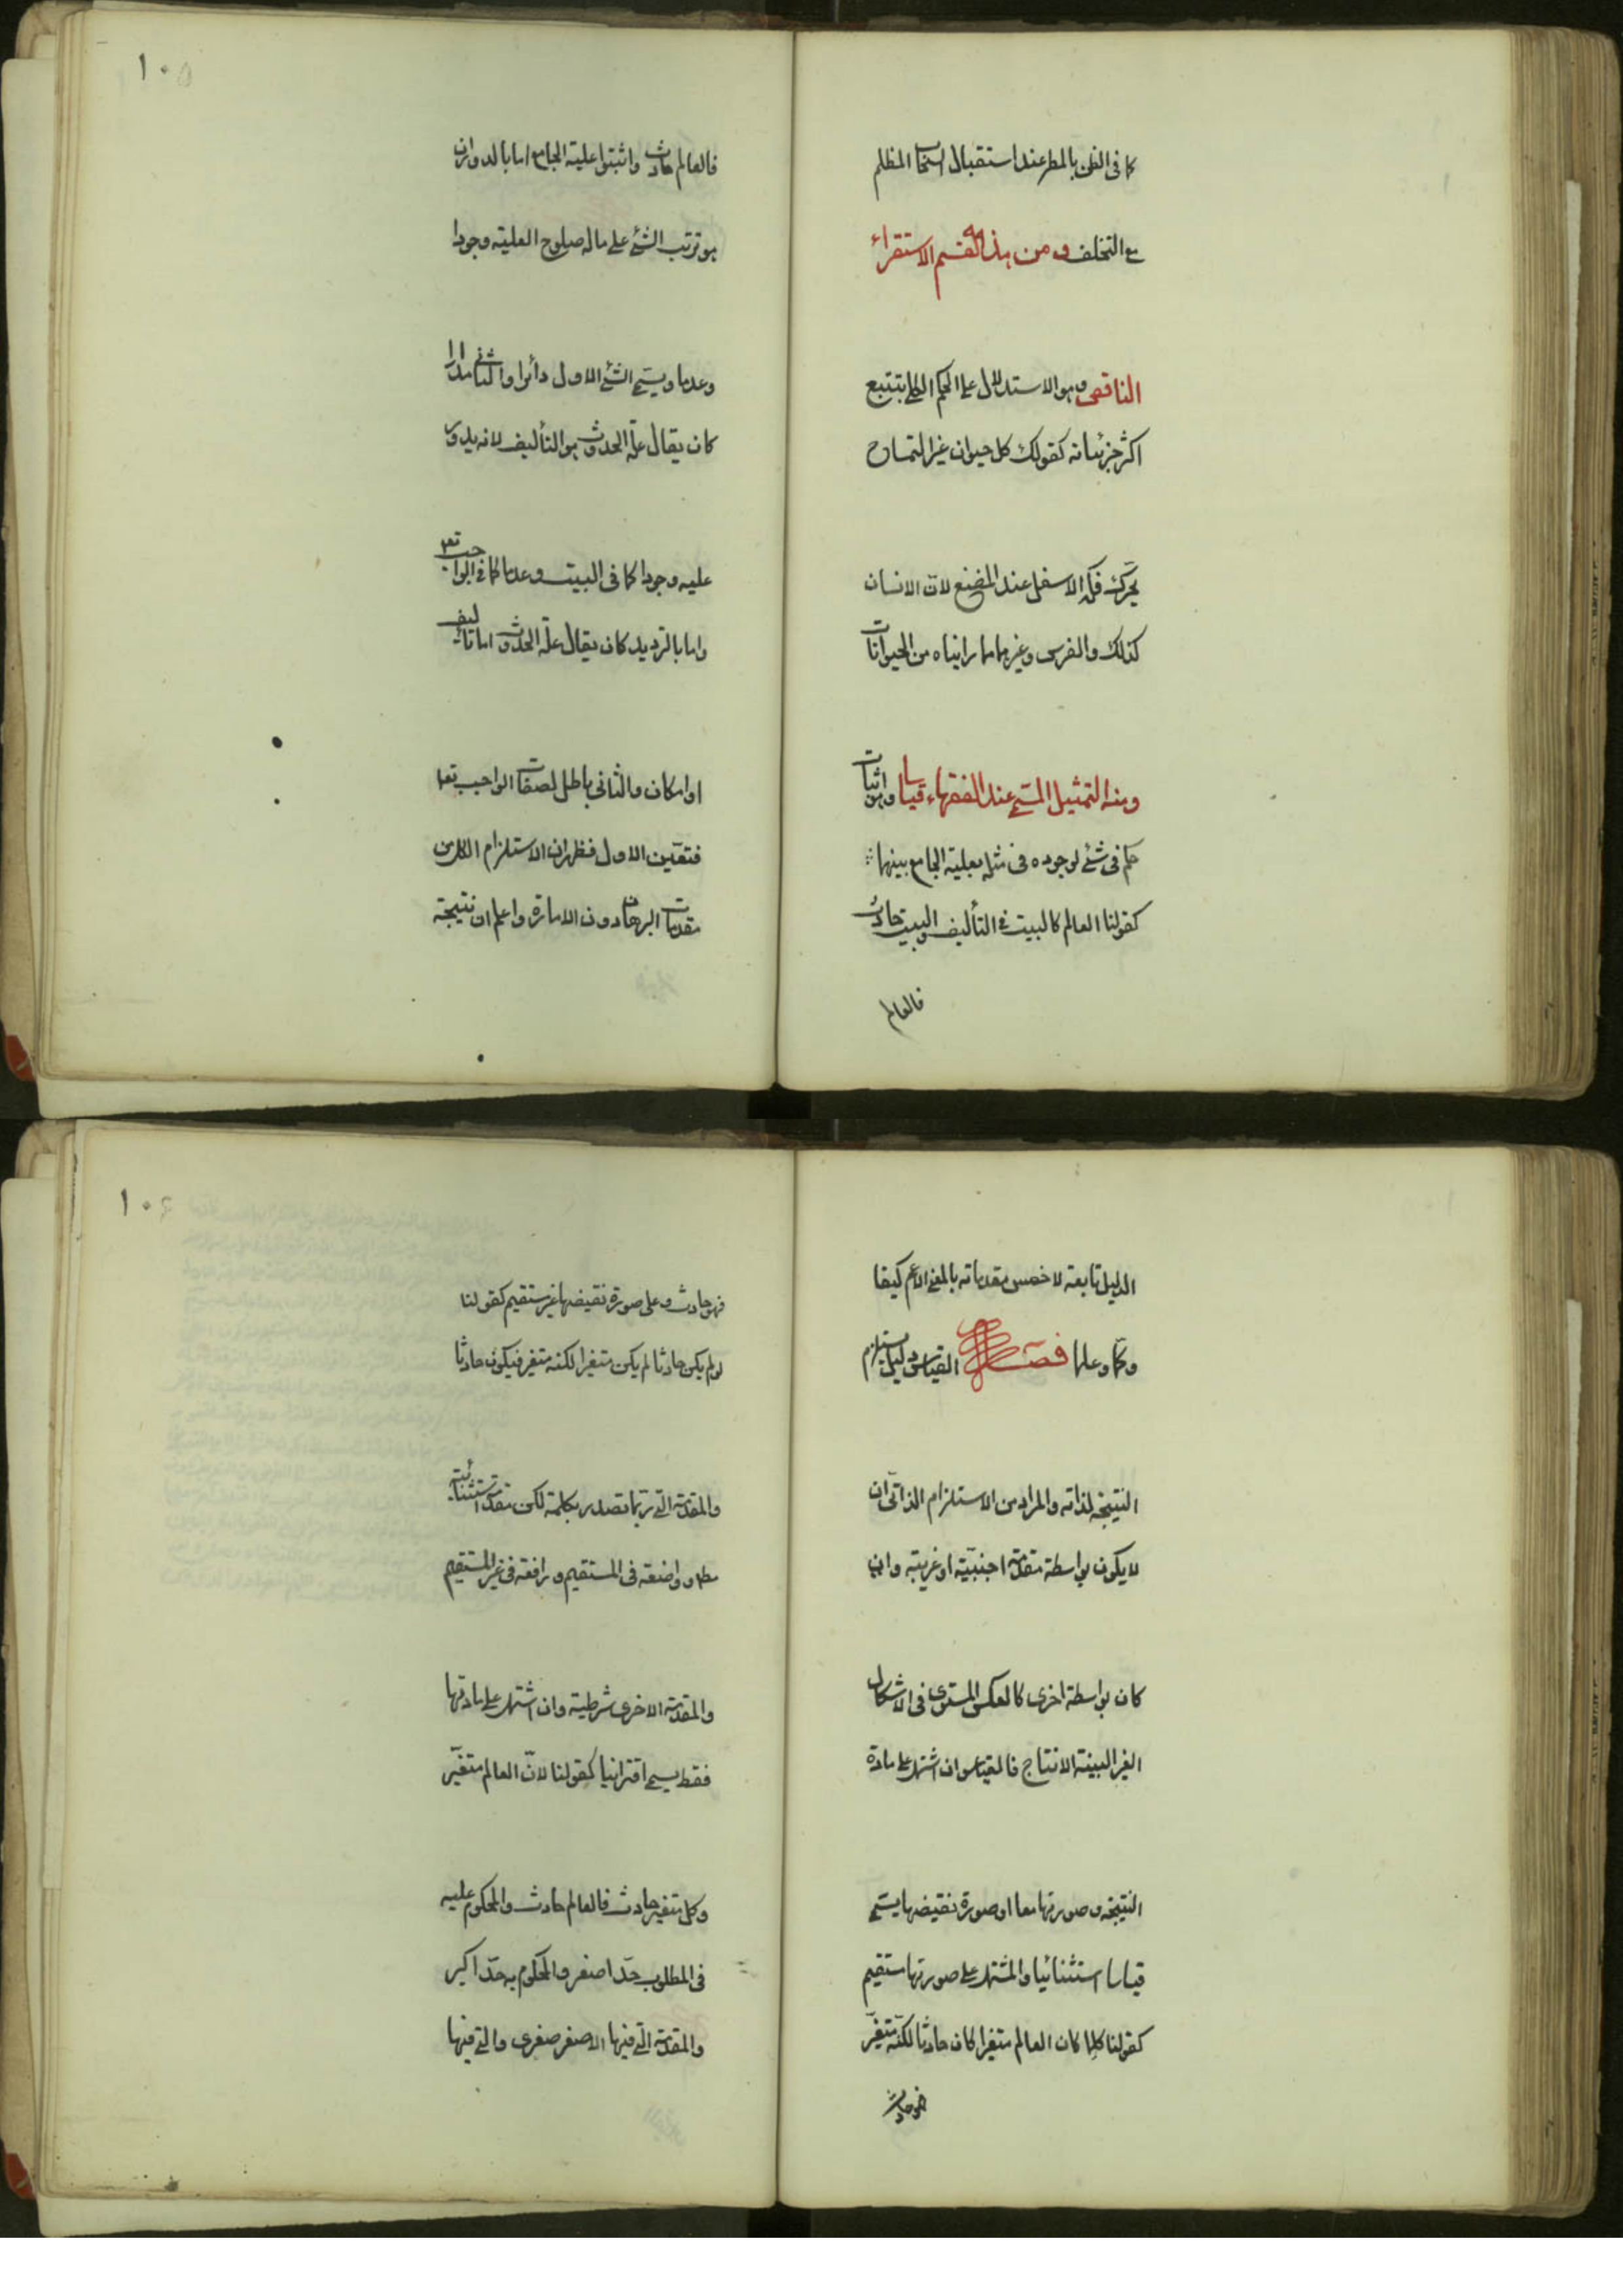 كما فى الظن بالمطر عند استقبال السحاب المظلم
مع التخلف ومن هذا القسم الاستقراء
الناقص وهو الاستدلال على الحكم الكلى بتتبع
اكثر جزئياته كقولك كل حيوان غير التمساح
يحرك فكه الاسفل عند المضغ لان الانسان
كذلك والفرس وغيرهما مما رايناه من الحيوانات
ومنه التمثيل المسمى عند الفقهاء قياسا وهو اثبات
حكم فى شئ لوجوده فى مثله بعلية الجامع بينهما
كقولنا العالم كالبيت فى التأليف والبيت حادث
فالعالم
١٠٥
فالعالم حادث واثبتوا علية الجامع اما بالدوران
هو ترتب الشئ على ما له صلوح العلية وجودا
وعدما ويسمى الشئ الاول دائرا والثانى مدارا
كان يقال علة الحدوث هو التأليف لانه يدور
عليه وجودا كما فى البيت وعدما كما فى الواجب تعا
واما بالترديد كان يقال علة الحدوث اما تاليف
او امكان والثانى باطل لصفات الواجب تعا
فتعين الاول فظهر ان الاستلزام الكل من
مقدمات البرهان دون الامارة واعلم ان نتيجة
الدليل تابعة لاخس مقدماته بالمعنى الاعم كيفا
وكما وعلما فصل القياس دليل يستلزم
النتيجة لذاته والمراد من الاستلزام الذاتى ان
لا يكون بواسطة مقدمة اجنبية او غريبة وان
كان بواسطة اخرى كالعكس المستوى فى الاشكال
الغير البينة الانتاج فالقياس ان اشتمل على مادة
النتيجة وصورتها معا او صورة نقيضها يسمى
قياسا استثنائيا والمشتمل على صورتها مستقيم
كقولنا كلما كان العالم متغيرا كان حادثا لكنه متغير
فهو حادث
١٠٦
فهو حادث وعلى صورة نقيضها غير مستقيم كقولنا
لو لم يكن حادثا لم يكن متغيرا لكنه متغير فيكون حادثا
والمقدمة التى ربما تصدر بكلمة لكن مقدمة استثنائية
مطلقا وواضعة فى المستقيم ورافعة فى غير المستقيم
والمقدمة الاخرى شرطية وان اشتمل على مادتها
فقط يسمى اقترانيا كقولنا لانّ العالم متغيّر
وكل متغير حادث فالعالم حادث والمحكوم عليه
فى المطلوب حدّا اصغر والمحكوم به حدّا اكبر
والمقدمة التى فيها الاصغر صغرى والتى فيها